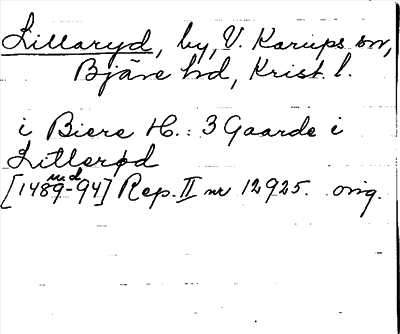 Lillaryd, by, V. Karups sn,
Bjäre hd, Krist. l.
i Biere H.: 3 Gaarde i
Litlerød
[1489-94] Rep. II nr 12925. orig.
u.d